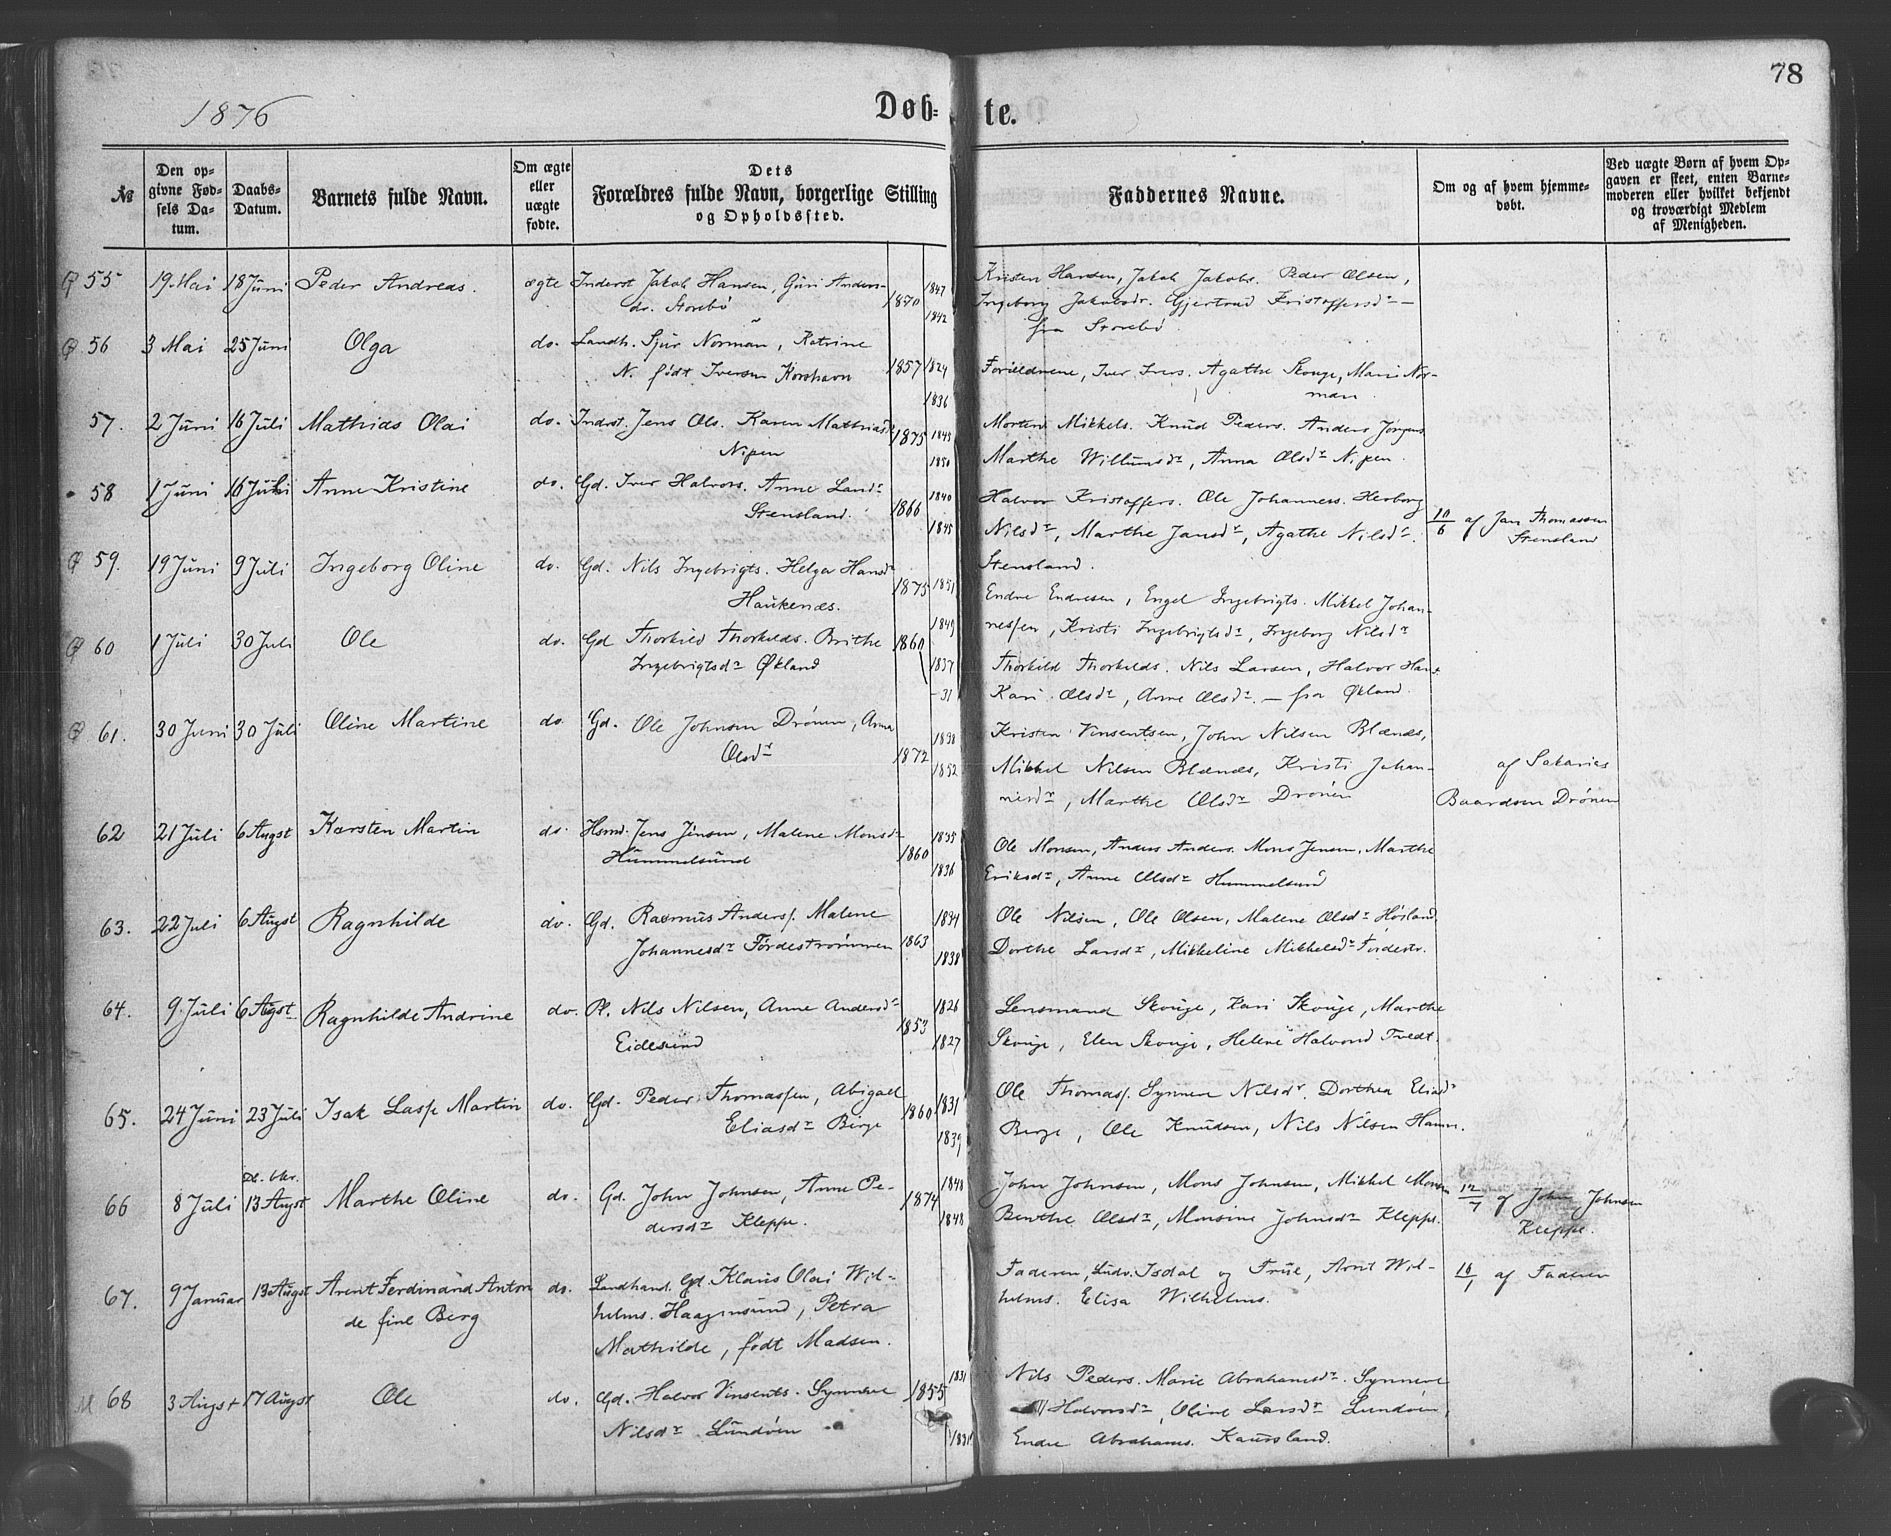 78
1876
Døb- te.
№
Den opgivne Fødsels Datum.
Daabs-Datum.
Barnets fulde Navn.
Om ægte eller uægte fødte.
Dets Forældres fulde Navn, borgerlige Stilling og Opholdssted.
Faddernes Navne.
Om og af hvem hjemmedøbt.
Ved uægte Børn af hvem Opgaven er skeet, enten Barnemoderen eller hvilket bekjendt og troværdigt Medlem af Menigheden.
55 19 Mai 18 Juni Peder Andreas. ægte Inderst Jakob Hansen, Guri Anders- 1870 1847 Kristen Hansen, Jakob Jakobs. Peder Olsen,
dr. Storebø 1842 Ingeborg Jakobsdr. Gjertrud Kristoffersdr —
fra Storebø
56 3 Mai 25 Juni Olga do. Landh. Sjur Norman, Katrine
N. født Iversen Korshavn 1857 1824 Forældrene, Iver Ivers. Agathe Skouge, Marie Nor-
1836 man.
57. 2 Juni 16 Juli Mathias Olai do. Indst. Jens Ols. Karen Mathiasdr 1875 1845 Morten Mikkels. Knud Peders. Anders Jørgens
Nipen 1850 Marthe Willumsdr, Anna Olsdr Nipen.
58 1 Juni 16 Juli Anne Kristine do. Gd. Iver Halvors. Anne Lars dr 1866 1840 Halvor Kristoffers. Ole Johanness. Herborg
Stensland. 1845 Nilsdr, Marthe Jansdr, Agathe Nilsdr. 10/6 af Jan Thomassen
Stensland. Stensland
59. 19 Juni 9 Juli Ingeborg Oline do. Gd. Nils Ingebrigts. Helga Hansdr 1875 1851 Endre Endresen, Engel Ingebrigts. Mikkel Johan-
Haukenæs. 1849 nessen, Kristi Ingebrigtsdr, Ingeborg Nilsdr
60 1 Juli 30 Juli Ole do. Gd Thorkild Thorkilds. Brithe 1860 1837 Thorkild Thorkilds. Nils Larsen, Halvor Hans.
Ingebrigtsdr Økland – 31 Kari Olsdr, Anne Olsdr. — fra Økland.
61. 30 Juni 30 Juli Oline Martine do. Gd. Ole Johnsen Drønen, Anna 1838 Kristen Vinsentsen, John Nilsen Blænæs,
Olsdr 1872 1852 Mikkel Nilsen Blænæs, Kristi Johan- af Sakarias
nesdr, Marthe Olsdr Drønen Baardsen Drønen
62 21 Juli 6 Augst Karsten Martin do. Hsmd. Jens Jensen, Malene Monsdr 1860 1835 Ole Monsen, Anders Anders. Mons Jensen, Marthe
Hummelsund 1836 Eriksdr, Anne Olsdr Hummelsund
63. 22 Juli 6 Augst Ragnhilde do. Gd. Rasmus Anderss. Malene 1863 1834 Ole Nilsen, Ole Olsen, Malene Olsdr Høisland
Johannesdr Førdestrømmen 1838 Dorthe Larsdr, Mikkeline Mikkelsdr Førdestr.
64. 9 Juli 6 Augst Ragnhilde Andrine do. Pl. Nils Nilsen, Anne Andersdr 1853 1826 Lensmand Skouge, Kari Skouge, Marthe
Eidesund 1827 Skouge, Elen Skouge, Helene Halvorsd Tvedt.
65. 24 Juni 23 Juli Isak Lasse Martin do. Gd. Peder Thomassen, Abigael 1860 1831 Ole Thomass. Synneve Nilsdr. Dorthea Eliasdr
Eliasdr Berge 1839 Berge, Ole Knudsen, Nils Nilsen Hamre.
66 8 Juli 13 Augst Marthe Oline do. Gd. John Johnsen, Anne Pe- 1874 1848 John Johnsen, Mons Johnsen, Mikkel Monsen 12/7 af John Johnsen
dersdr Kleppe. 1848 Benthe Olsdr, Monsine Johnsdr Kleppe. Kleppe.
67. 9 Januar 13 Augst Arent Ferdinand Anton do. Landhand. Gd. Klaus Olai Wil- Faderen, Ludv. Isdal og Frue, Arnt Wil- 16/1 af Faderen
de fine Berg helms. Haagensund, Petra helms. Elisa Wilhelms.
Mathilde, født Madsen.
68 3 Augst 17 Augst Ole do. Gd. Halvor Vinsents. Synneve 1855 1831 Nils Peders. Marie Abrahamsdr. Synneve
Nilsdr. Lundøen 1831 Halvorsdr, Oline Larsdr Lundøen,
Endre Abrahams. Kausland.